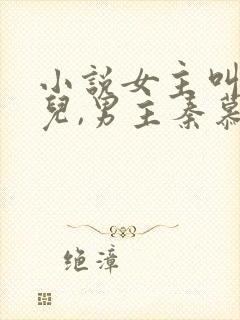 小說女主叫
兒,男主秦慕
绝漳